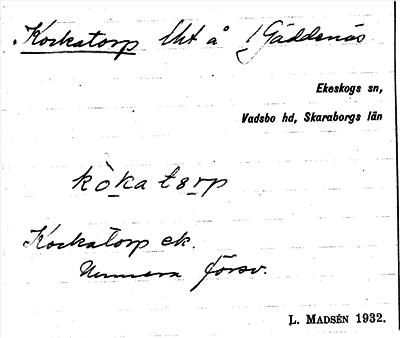 Kockatorp lht å Gäddenäs
Ekeskogs sn,
Vadsbo hd, Skaraborgs län
kòkatɑrp
Kockatorp ek.
Numera försv.
L. MADSÉN 1932.